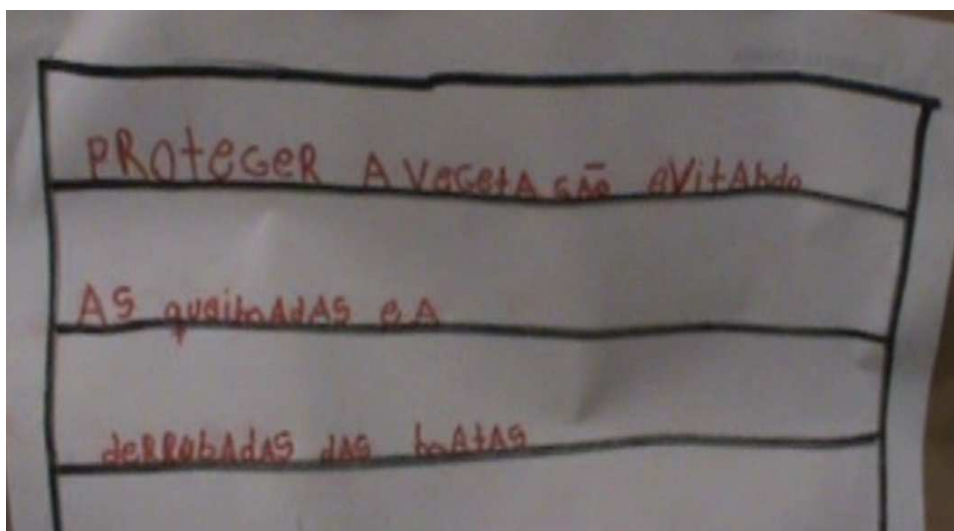 PROteGeR A VeGetAsÃo eVitAndo
AS queimAdAS e A
deRRubAdAS dAS mAtAS